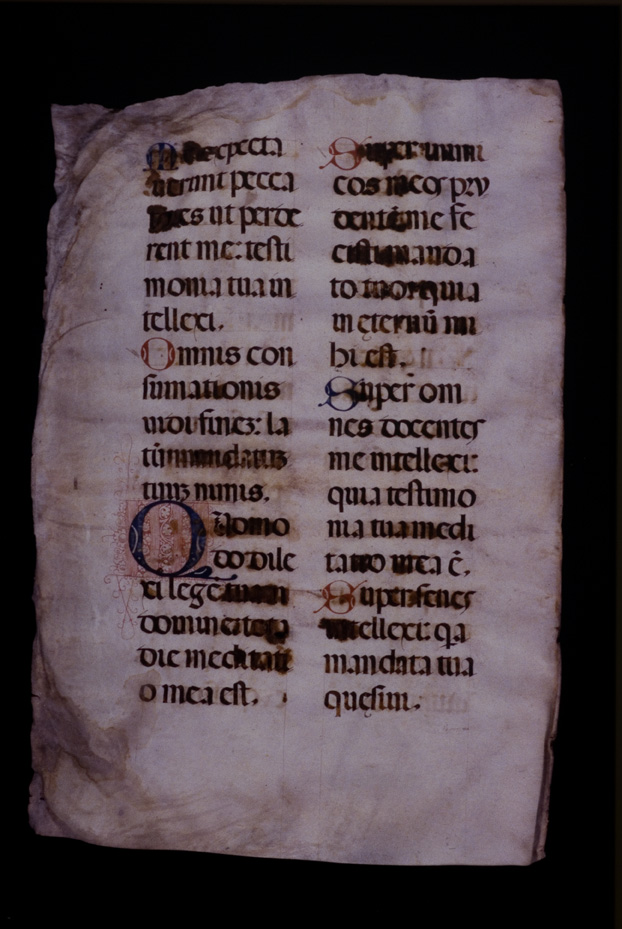 Me expecta
uerunt pecca
tores ut perde
rent me: testi
monia tua in
tellexi.
Omnis con
sumationis
uidi finez: la
tũ mandatuz
tuuz nimis.
Quomo
do dile
xi legē tuam
domine: tota
die meditati
o mea est.
Super inimi
cos meos pru
dentē me fe
cisti manda
to tuo: quia
in eternũ mi
hi est.
Super om
nes docentes
me intellexi:
quia testimo
nia tua medi
tatio mea ē.
Super senes
intellexi: qa
mandata tua
quesiui.